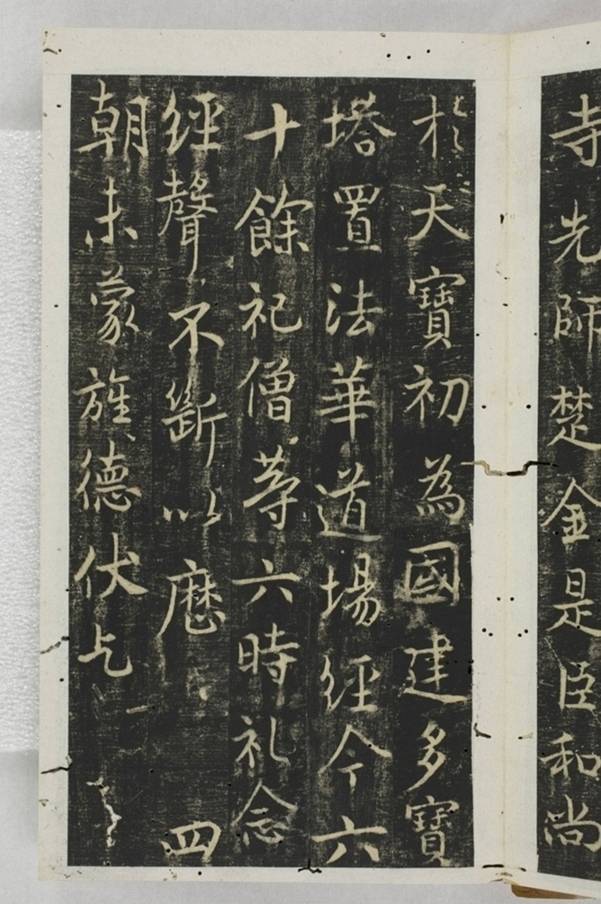 寺先師楚金是臣和尚
於天寶初為國建多寶
塔置法華道場經今六
十餘祀僧等六時礼念
經聲不斷以歴四
朝未蒙旌德伏乞